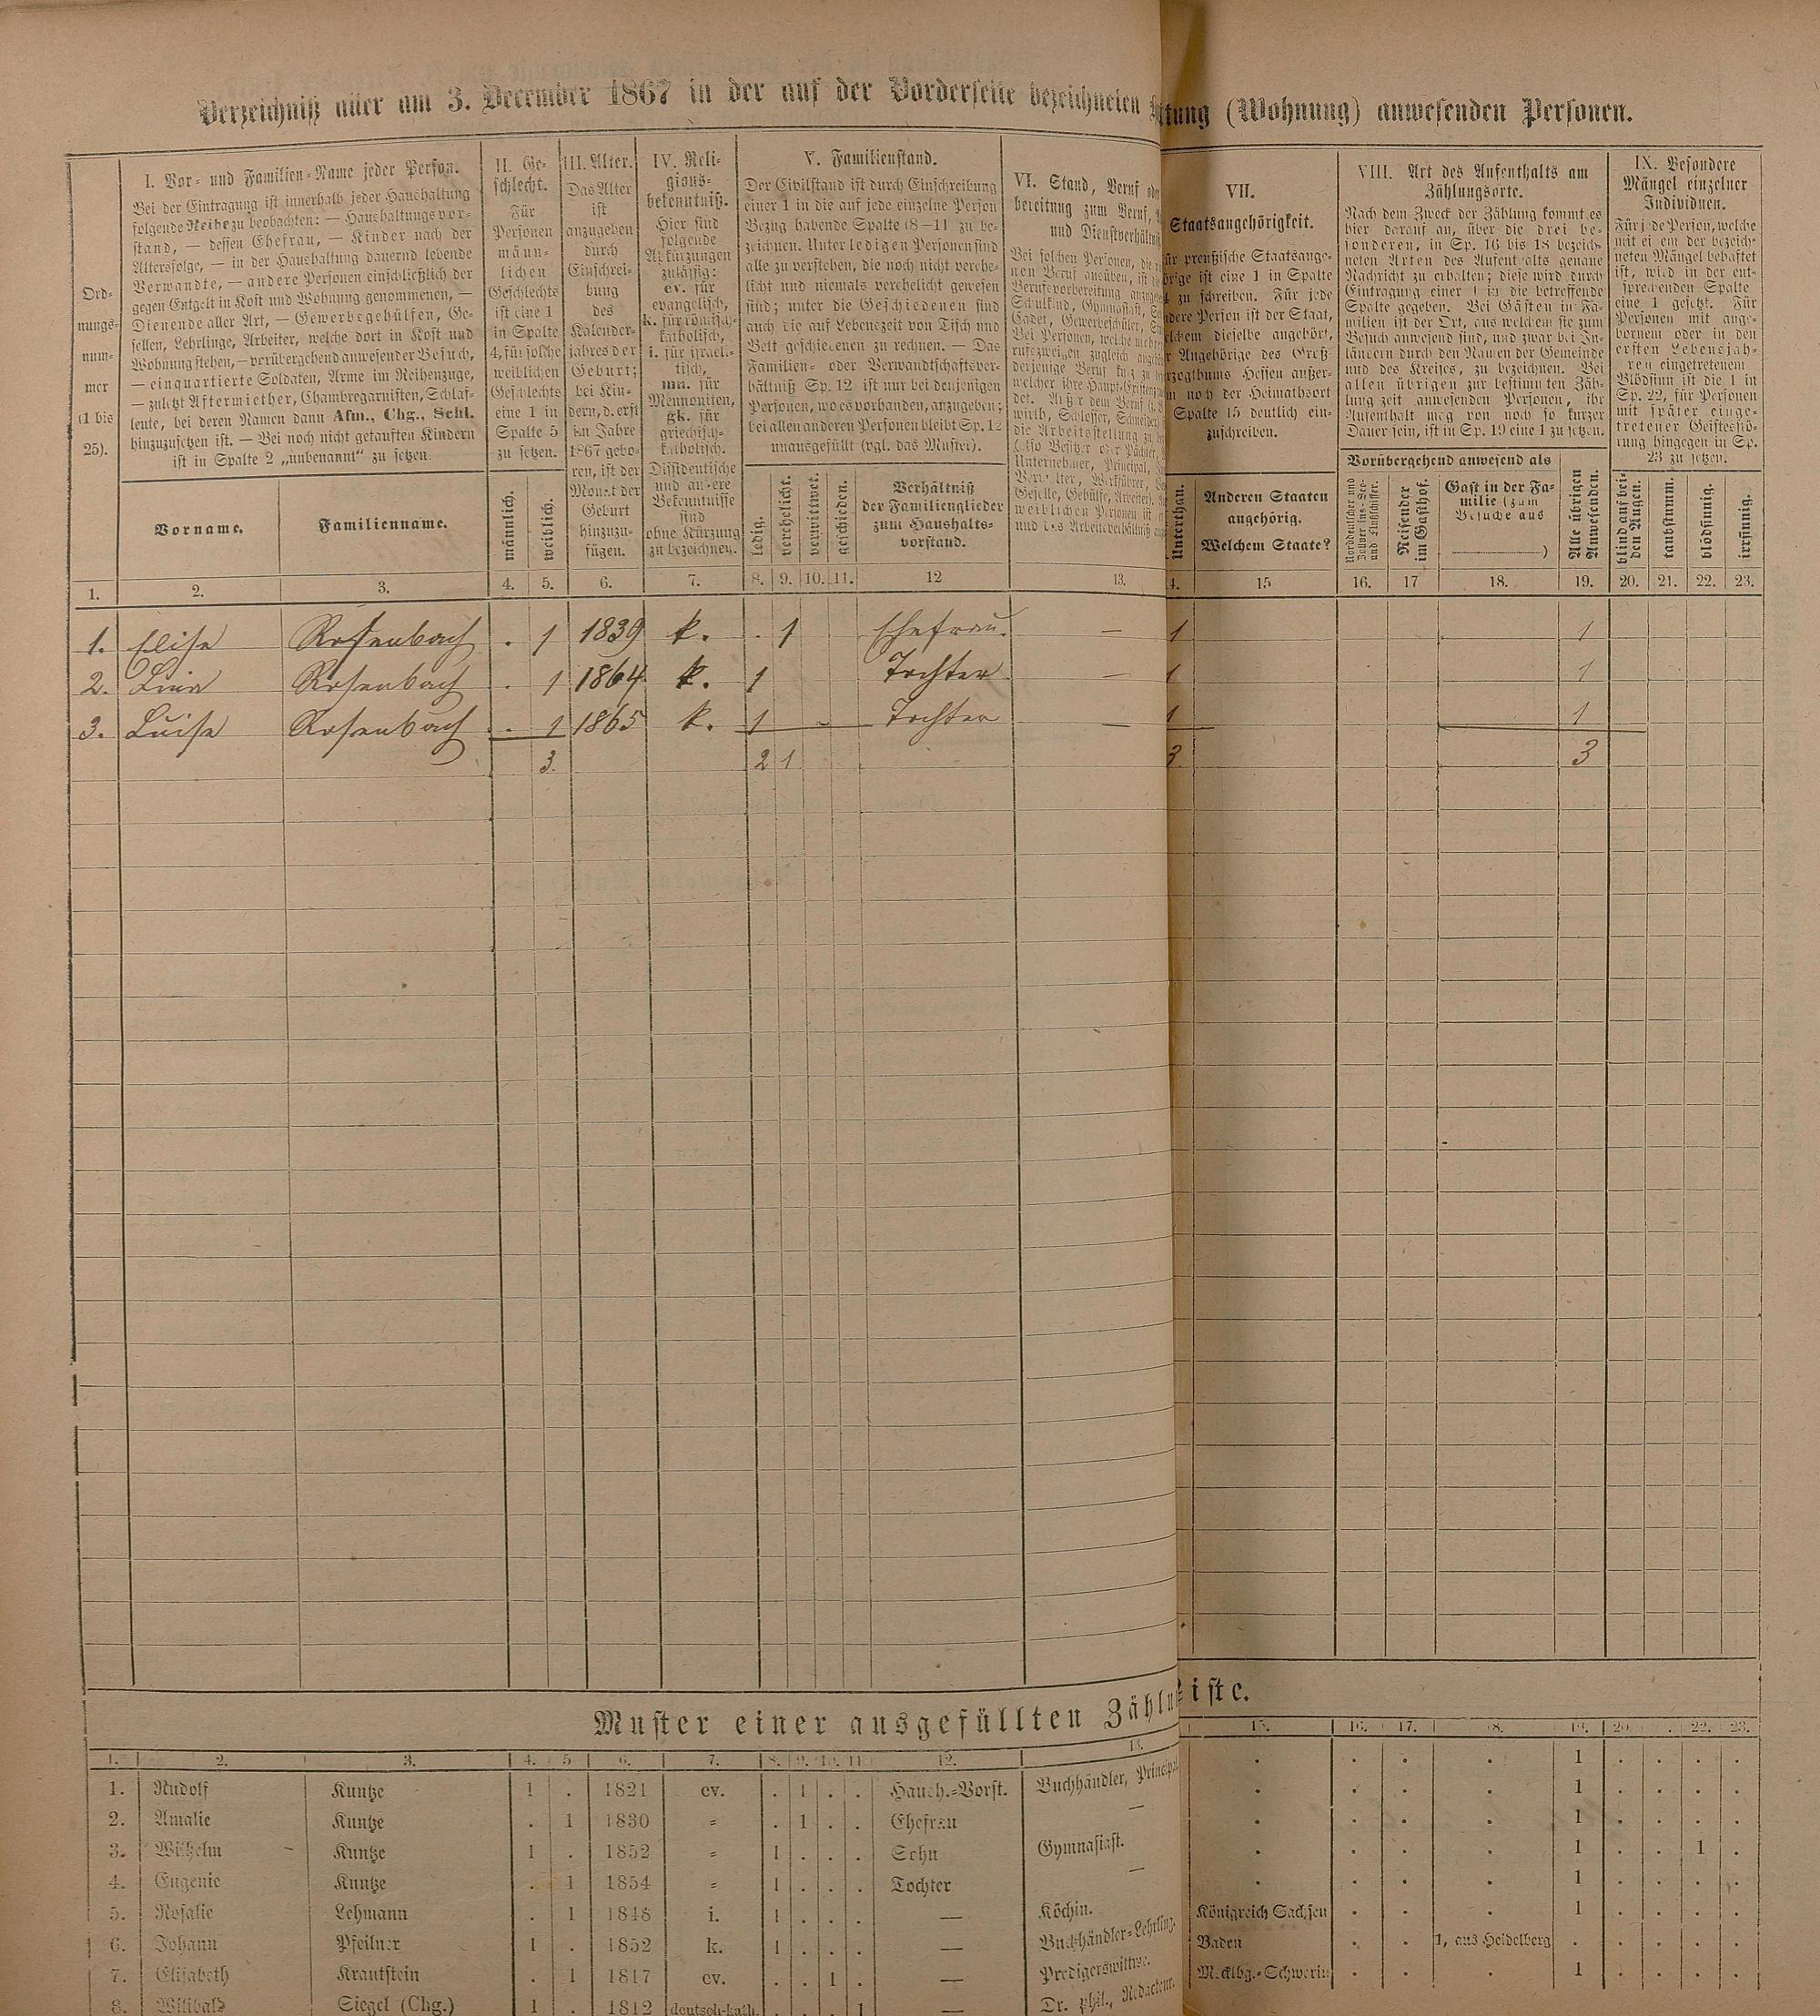 Verzeichniß aller am 3. December 1867 in der auf der Vorderseite bezeichneten
tung (Wohnung) anwesenden Personen.
Ord-
nungs-
num-
mer
(1 bis
25).
I. Vor- und Familien-Name jeder Person.
Bei der Eintragung ist innerhalb jeder Haushaltung
folgende Reihe zu beobachten: — Haushaltungsvor-
stand, — dessen Ehefrau, — Kinder nach der
Altersfolge, — in der Haushaltung dauernd lebende
Verwandte, — andere Personen einschließlich der
gegen Entgelt in Kost und Wohnung genommenen, —
Dienende aller Art, — Gewerbsgehülfen, Ge-
sellen, Lehrlinge, Arbeiter, welche dort in Kost und
Wohnung stehen, — vorübergehend anwesender Besuch,
— einquartierte Soldaten, Arme im Reihenzuge,
— zuletzt Aftermiether, Chambregarnisten, Schlaf-
leute, bei deren Namen dann Afm., Chg., Schl.
hinzuzusetzen ist. — Bei noch nicht getauften Kindern
ist in Spalte 2 „unbenannt“ zu setzen.
Vorname.
Familienname.
II. Ge-
schlecht.
Für
Personen
männ-
lichen
Geschlechts
ist eine 1
in Spalte
4, für solche
weiblichen
Geschlechts
eine 1 in
Spalte 5
zu setzen.
männlich.
weiblich.
III. Alter.
Das Alter
ist
anzugeben
durch
Einschrei-
bung
des
Kalender-
jahres der
Geburt;
bei Kin-
dern, d. erst
im Jahre
1867 gebo-
ren, ist der
Monat der
Geburt
hinzuzu-
fügen.
IV. Reli-
gions-
bekenntniß.
Hier sind
folgende
Abkürzungen
zulässig:
ev. für
evangelisch,
k. für römisch-
katholisch,
i. für israeli-
tisch,
mn. für
Mennoniten,
gk. für
griechisch-
katholisch.
Dissidentische
und andere
Bekenntnisse
sind
ohne Kürzung
zu bezeichnen.
V. Familienstand.
Der Civilstand ist durch Einschreibung
einer 1 in die auf jede einzelne Person
Bezug habende Spalte (8—11) zu be-
zeichnen. Unter ledigen Personen sind
alle zu verstehen, die noch nicht verehe-
licht und niemals verehelicht gewesen
sind; unter die Geschiedenen sind
auch die auf Lebenszeit von Tisch und
Bett geschiedenen zu rechnen. — Das
Familien- oder Verwandtschaftsver-
hältniß Sp. 12 ist nur bei denjenigen
Personen, wo es vorhanden, anzugeben;
bei allen anderen Personen bleibt Sp. 12
unausgefüllt (vgl. das Muster).
ledig.
verehelicht.
verwittwet.
geschieden.
Verhältniß
der Familienglieder
zum Haushalts-
vorstand.
VI. Stand, Beruf oder
bereitung zum Beruf,
und Dienstverhältniß
VII.
Staatsangehörigkeit.
Unterthan.
Anderen Staaten
angehörig.
Welchem Staate?
VIII. Art des Aufenthalts am
Zählungsorte.
Nach dem Zweck der Zählung kommt es
hier darauf an, über die drei be-
sonderen, in Sp. 16 bis 18 bezeich-
neten Arten des Aufenthalts genaue
Nachricht zu erhalten; diese wird durch
Eintragung einer 1 in die betreffende
Spalte gegeben. Bei Gästen in Fa-
milien ist der Ort, aus welchem sie zum
Besuch anwesend sind, und zwar bei In-
ländern durch den Namen der Gemeinde
und des Kreises, zu bezeichnen. Bei
allen übrigen zur bestimmten Zäh-
lung zeit anwesenden Personen, ihr
Aufenthalt mag von noch so kurzer
Dauer sein, ist in Sp. 19 eine 1 zu setzen.
Vorübergehend anwesend als
Norddeutscher und
Zollver ins-See-
und Flußschiffer.
Reisender
im Gasthof.
Gast in der Fa-
milie (zum
Besuche aus
)
Alle übrigen
Anwesenden.
IX. Besondere
Mängel einzelner
Individuen.
Für jede Person, welche
mit einem der bezeich-
neten Mängel behaftet
ist, wird in der ent-
sprechenden Spalte
eine 1 gesetzt. Für
Personen mit ange-
bornem oder in den
ersten Lebensjah-
ren eingetretenem
Blödsinn ist die 1 in
Sp. 22, für Personen
mit später einge-
tretener Geistesstö-
rung hingegen in Sp.
23 zu setzen.
blind auf bei-
den Augen.
taubstumm.
blödsinnig.
irrsinnig.
1. 2. 3. 4. 5. 6. 7. 8. 9. 10. 11. 12 13. 4. 15 16. 17 18. 19. 20. 21. 22. 23.
1. Elise Rosenbach . 1 1839 k. . 1 Ehefrau. — 1 1
2. Lina Rosenbach . 1 1864 k. 1 Tochter — 1 1
3. Luise Rosenbach . 1 1865 k. 1 Tochter — 1 1
3. 2 1 3 3
Muster einer ausgefüllten Zählu
iste.
1. 2. 3. 4. 5 6. 7. 8. 9. 10. 11 12. 13. 15. 16. 17. 18. 19. 20. . 22. 23.
1. Rudolf Kuntze 1 . 1821 ev. . 1 . . Haush.-Vorst. Buchhändler, Principal . . . . 1 . . . .
2. Amalie Kuntze . 1 1830 = . 1 . . Ehefrau — . . . . 1 . . . .
3. Wilhelm Kuntze 1 . 1852 = 1 . . . Sohn Gymnasiast. . . . . 1 . . 1 .
4. Eugenie Kuntze . 1 1854 = 1 . . . Tochter — . . . . 1 . . . .
5. Rosalie Lehmann . 1 1846 i. 1 . . . — Köchin. Königreich Sachsen . . . 1 . . . .
6. Johann Pfeilner 1 . 1852 k. 1 . . . — Buchhändler-Lehrling. Baden . . 1, aus Heidelberg . . . . .
7. Elisabeth Krautstein . 1 1817 ev. . . 1 . — Predigerswittwe. Mecklbg.-Schwerin . . . 1 . . . .
8. Willibald Siegel (Chg.) 1 . 1812 deutsch-kath. . . . 1 — Dr. phil., Redacteur.